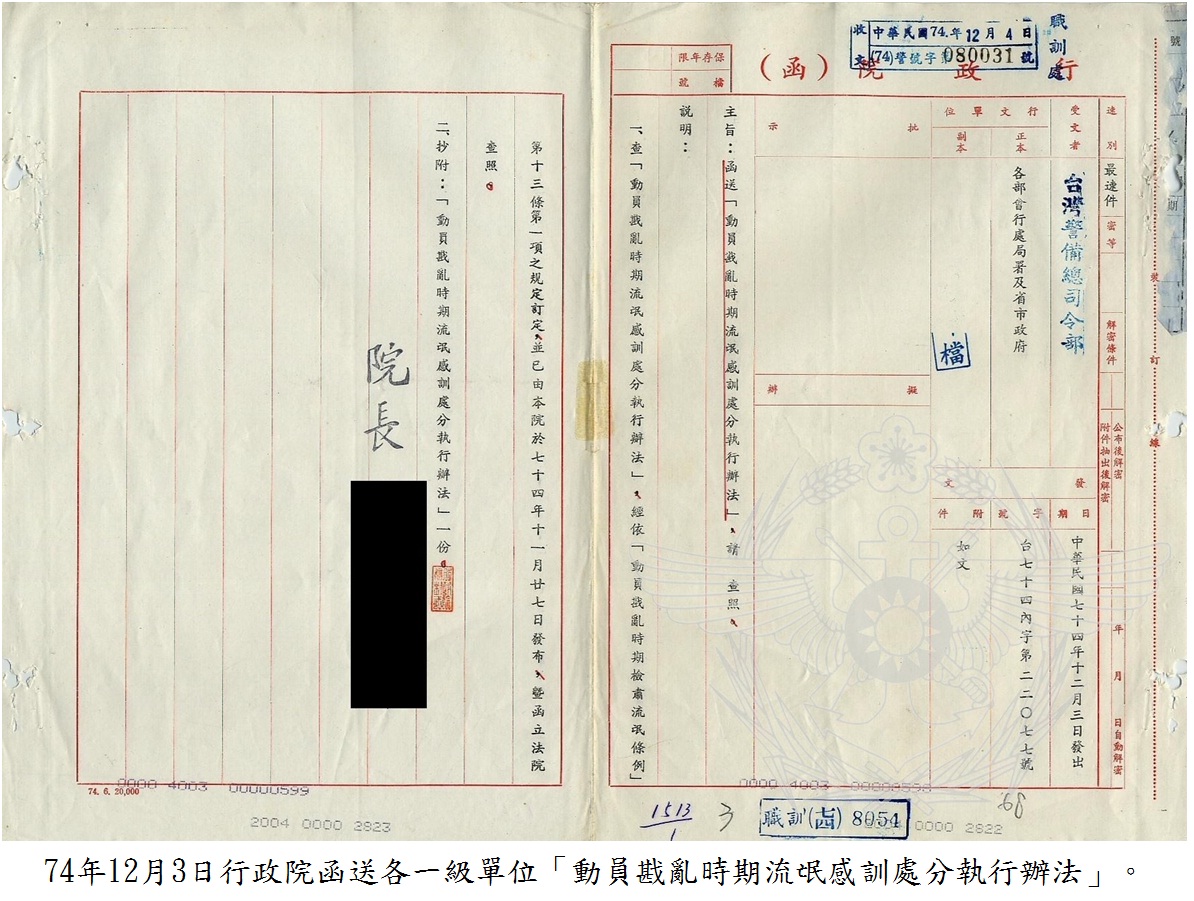 職訓處
收文
中華民國74.年12月4日
(74)警號字第080031號
行政院（函）
保存年限
檔號
速別
最速件
密等
解密條件
公布後解密
附件抽出後解密
年月日自動解密
受文者
台灣警備總司令部
行文單位
正本
副本
各部會行處局署及省市政府
檔
發文
日期
中華民國七十四年十二月三日發出
字號
台七十四內字第二二〇七七號
附件
如文
批示
擬辦
主旨：函送「動員戡亂時期流氓感訓處分執行辦法」，請　查照。
說明：
一、查「動員戡亂時期流氓感訓處分執行辦法」，經依「動員戡亂時期檢肅流氓條例」
第十三條第一項之規定訂定，並已由本院於七十四年十一月廿七日發布，暨函立法院
查照。
二、抄附：「動員戡亂時期流氓感訓處分執行辦法」一份。
院長
裝
訂
線
74. 6. 20,000
0000 4003 00000599
2004 0000 2823
0000 4003 00000598
0000 2822
1513
1
3
職訓(古)8054
68
74年12月3日行政院函送各一級單位「動員戡亂時期流氓感訓處分執行辦法」。